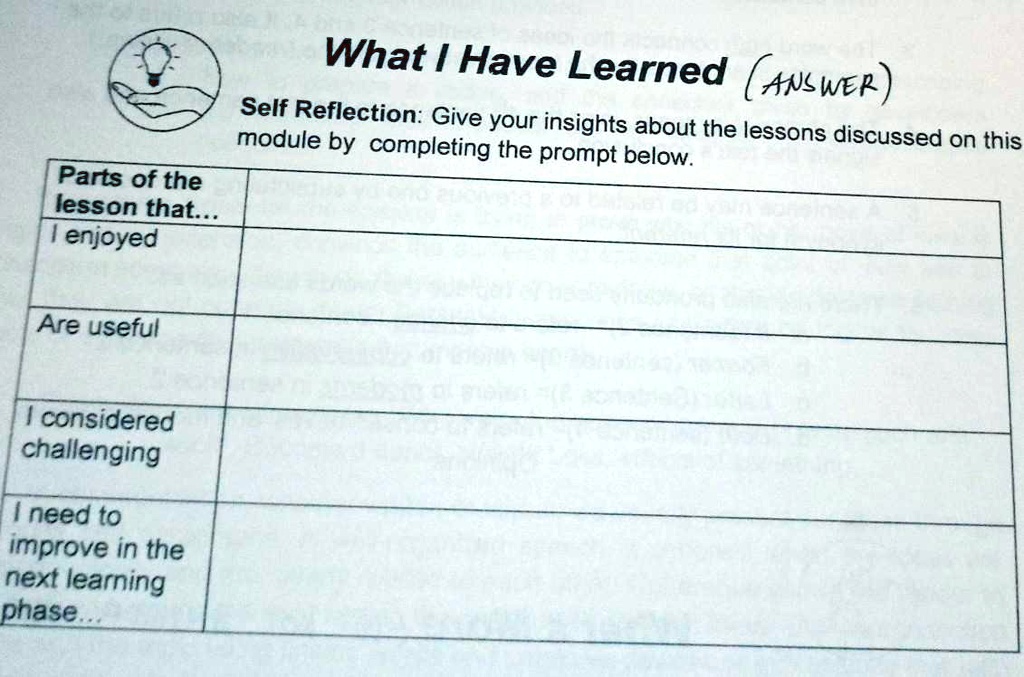 What I Have Learned (ANSWER)
Self Reflection: Give your insights about the lessons discussed on this
module by completing the prompt below.
Parts of the
lesson that...
I enjoyed
Are useful
I considered
challenging
I need to
improve in the
next learning
phase...